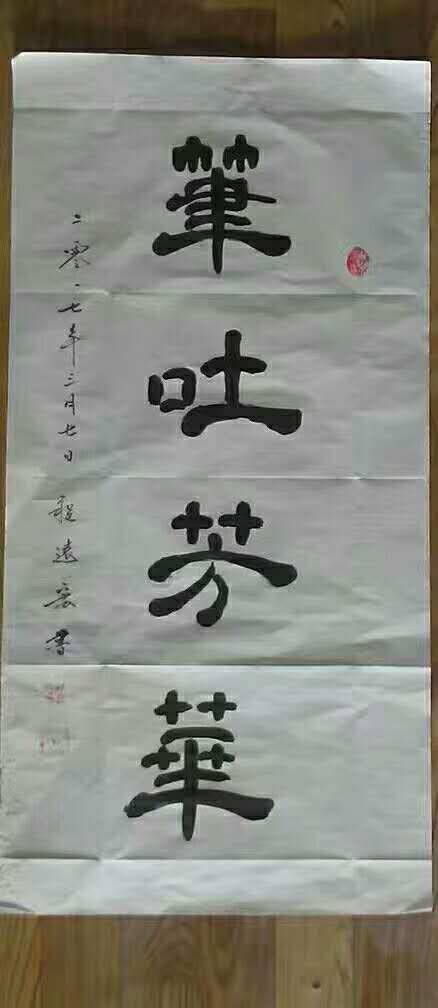 筆吐芳華
二零一七年三月七日 程遠安書